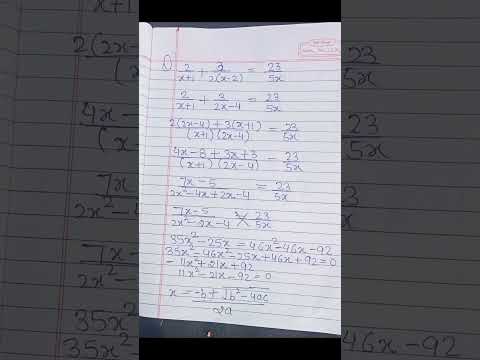 1) 2/(x+1) + 3/(2(x-2)) = 23/5x
2/(x+1) + 3/(2x-4) = 23/5x
(2(2x-4) + 3(x+1))/((x+1)(2x-4)) = 23/5x
(4x-8+3x+3)/((x+1)(2x-4)) = 23/5x
(7x-5)/(2x²-4x+2x-4) = 23/5x
(7x-5)/(2x²-2x-4) 23/5x
35x²-25x = 46x²-46x-92
35x²-46x²-25x+46x+92=0
-11x²+21x+92
11x²-21x-92=0
x = (-b±√b²-4ac)/2a